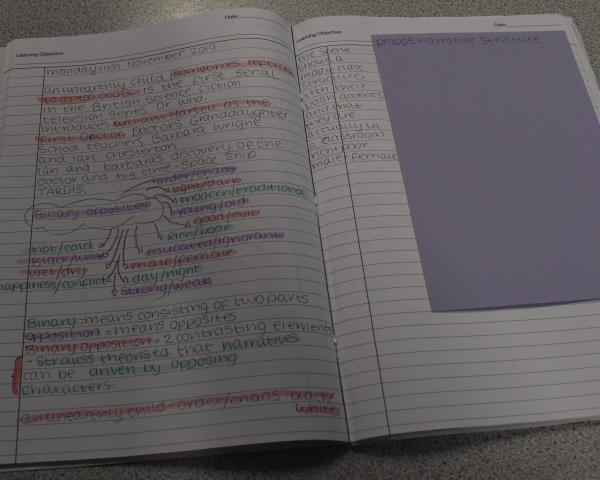 Date:
Learning Objective:
monday 11th November 2019
an unearthly child (sometimes referred
to as 100,000BC) is the first serial
in the British science fiction
television series Dr who.
Introduces william Harteil as the
first Doctor, Doctors Granddaughter
School teachers Barbara wright
and ian chesterton.
Ian and barbara's discovery of the
doctor and his time-space ship
TARDIS.
Binary opposites
order/chaos
light/dark
modern/traditional
young/old
good/evil
rich/poor
educated/ignorant
male/female
day/night
strong/weak
hot/cold
Black/white
wet/dry
happiness/conflict
Binary = means consisting of two parts
opposition = means opposites
Binary opposition = 2 contrasting elements
- Strauss theorised that narratives
can be driven by opposing
characters.
an unearthly child - order/chaos - black/
white
Date:
Learning Objective:
the scene
class
structure,
with their
posh accents
and that
they are
actually in
a classroom
rich-poor
male/female
propps narrative structure